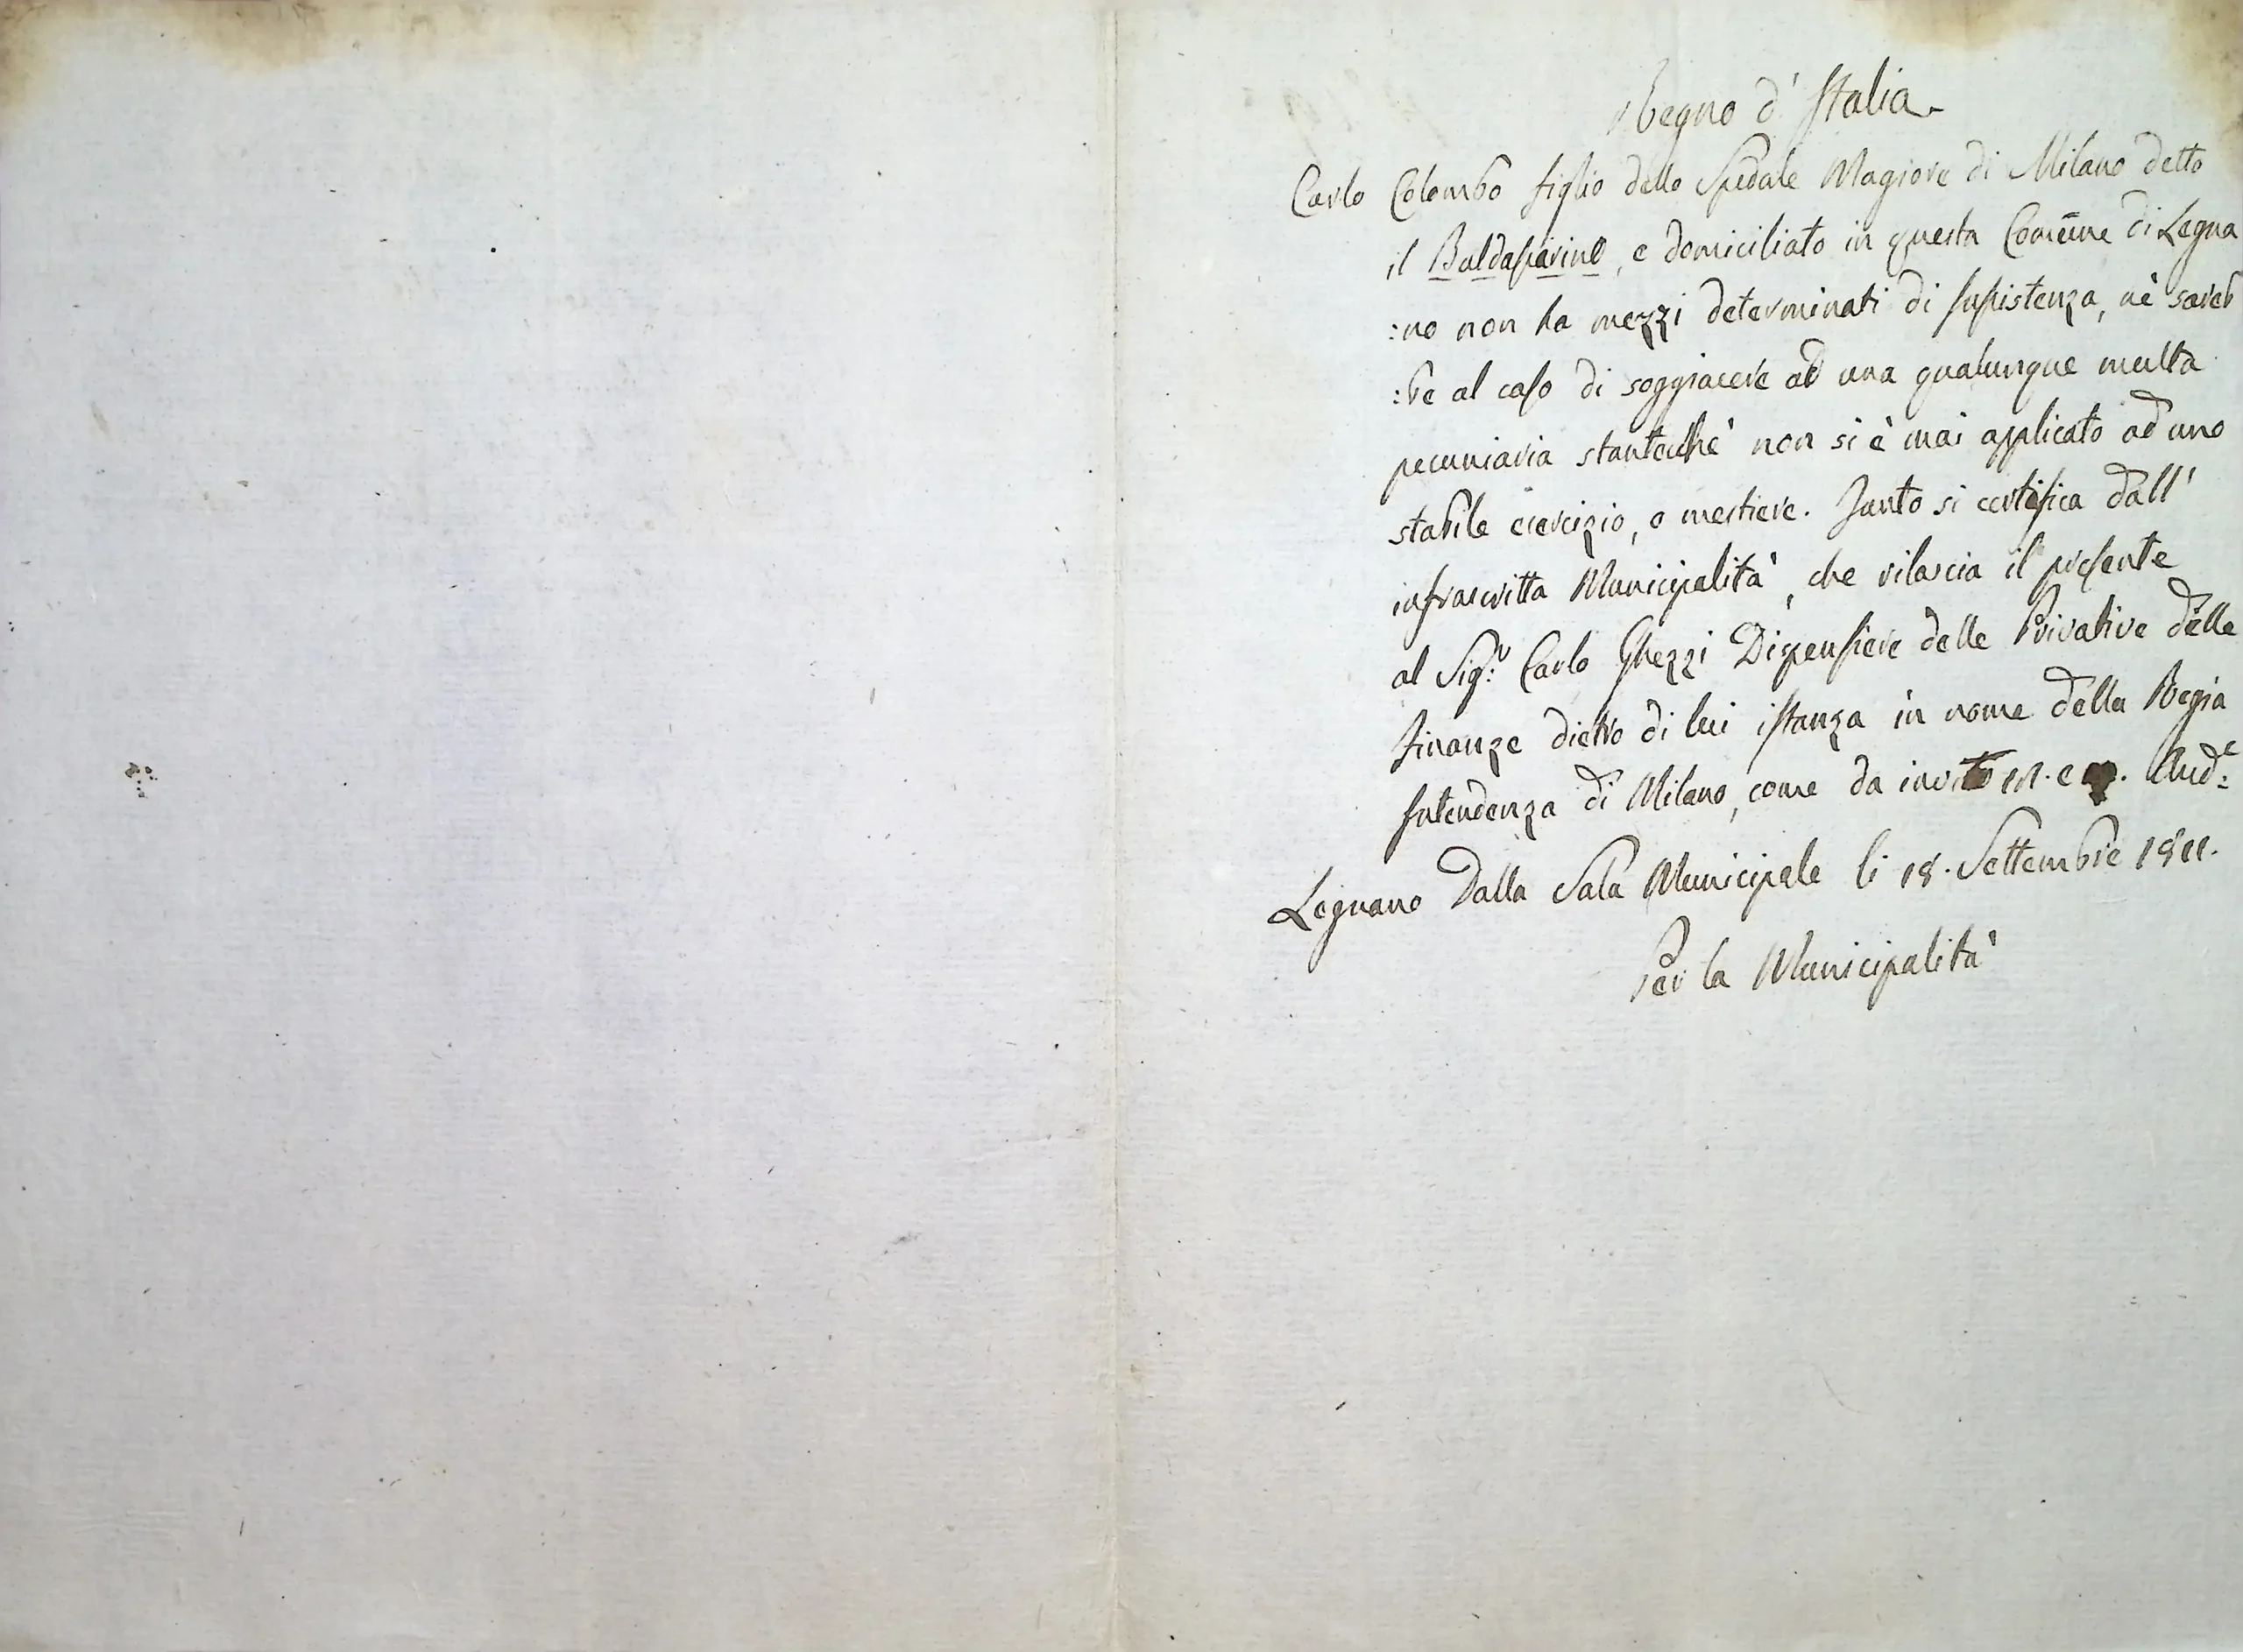 Regno d'Italia
Carlo Colombo figlio dello Spedale Magiore di Milano detto
il Baldasarino, e domiciliato in questa Comūne di Legna
:no non ha mezzi determinati di susistenza, nè sareb
:be al caso di soggiacere ad una qualunque multa
pecuniaria stantechè non si è mai applicato ad uno
stabile esercizio, o mestiere. Tanto si certifica dall'
infrascritta Municipalità, che rilascia il presente
al Sig.r Carlo Ghezzi Dispensiere delle Privative delle
Finanze dietro di lui istanza in nome della Regia
Intendenza di Milano, come da invito And.e
Legnano Dalla Sala Municipale li 18. Settembre 1811.
Per la Municipalità